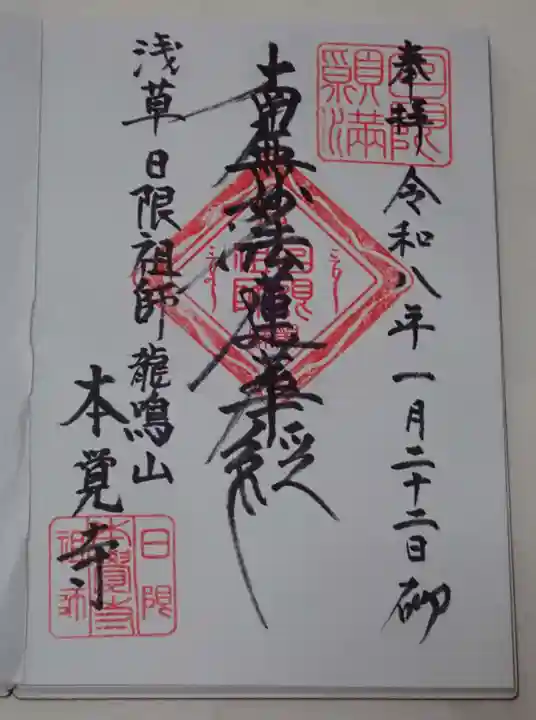 奉拝 令和八年一月二十二日
日限願満
南無妙法蓮華経
浅草 日限祖師 龍鳴山
本覚寺
日限
本覺寺
祖師